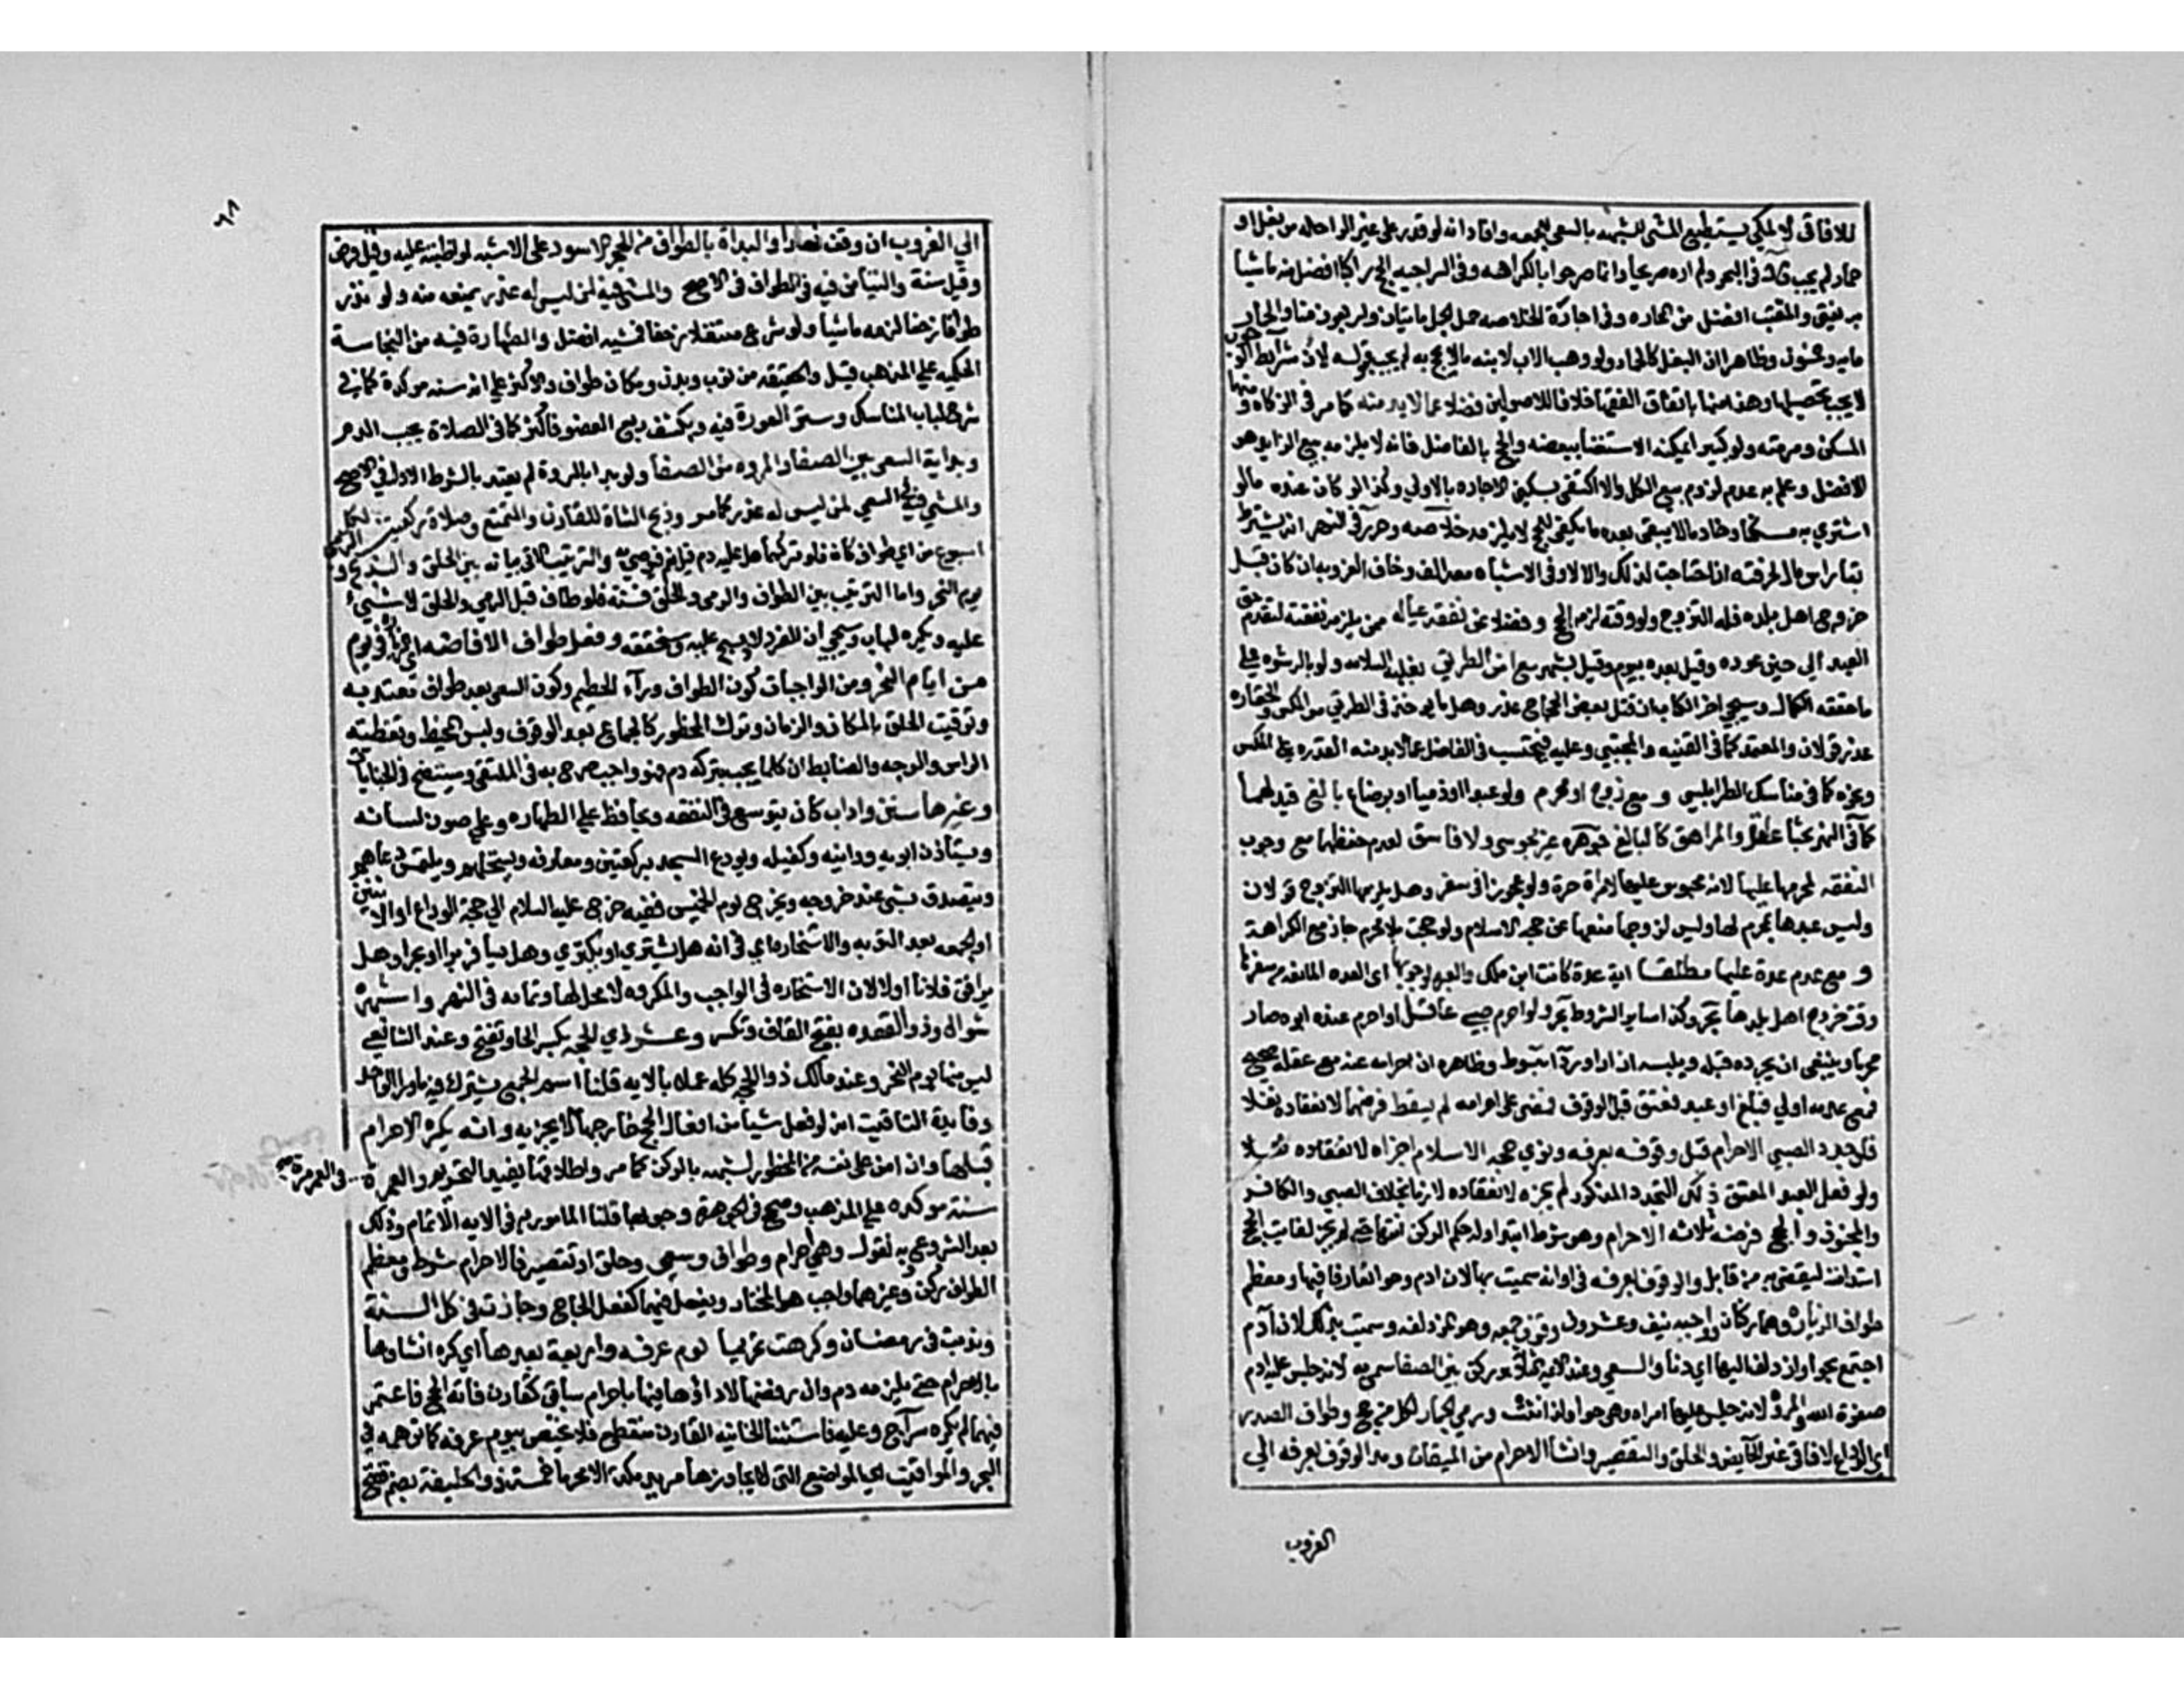 للافاقي لا لمكي يستطيع المشي لشبهه بالسعي للجمعه وافاد انه لو قدر على غير الراحله من بغل او
حمار لم يجب قال في البحر ولم اره صريحا وانما صرحوا بالكراهه وفي السراجيه الحج راكبا افضل منه ماشيا
به يفتى والمقتب افضل من المحاره وفي اجارة الخلاصه حمل الجمل مايتان واربعون منا والحمار
مايه وخمسون وظاهره ان البغل كالحمار ولو وهب الاب لابنه مالا يحج به لم يجب قبوله لان شرايط الوجوب
لا يجب تحصيلها وهذه منها باتفاق الفقها خلافا للاصوليين فضلا عما لا بد منه كما مر في الزكاه ومنها
المسكن ومرمته ولو كبيرا يمكنه الاستغنا ببعضه والحج بالفاضل فانه لا يلزمه بيع الزايد هو
الافضل وعلم به عدم لزوم بيع الكل والاكتفى بسكنى الاجاره بالاولى وكذا لو كان عنده ما لو
اشتري به مسكنا وخادما لا يبقى بعده ما يكفي للحج لا يلزمه خلاصه وحرر في النهر انه يشترط
بقا راس مال لحرفته ان احتاجت لذلك والا لا وفي الاشباه معه الف وخاف العزوبه ان كان قبل
خروج اهل بلده فله التزوج ولو وقته لزمه الحج و فضلا عن نفقه عياله ممن يلزمه نفقته لتقدم حق
العبد الى حين عوده وقيل بعده بيوم وقيل بشهر مع امن الطريق بغلبه السلامه ولو بالرشوه على
ما حققه الكمال وسيجي اخر الكتاب ان قتل بعض الحجاج عذر وهل ما يوخذ في الطريق من المكس والخفاره
عذر قولان والمعتمد لا كما في القنيه والمجتبي وعليه فيحتسب في الفاضل عما لا بد منه القدره على المكس
ونحوه كما في مناسك الطرابلسي و مع زوج او محرم ولو عبدا او ذميا او برضاع بالغ قيد لهما
كما في النهر بحثا عاقل والمراهق كالبالغ جوهره غير مجوسي ولا فاسق لعدم حفظهما مع وجوب
النفقه لمحرمها عليها لانه محبوس عليها لامراة حرة ولو عجوزا في سفر وهل يلزمها التزوج قولان
وليس عبدها بمحرم لها وليس لزوجها منعها عن حجه الاسلام ولو حجت بلا محرم جاز مع الكراهة
و مع عدم عدة عليها مطلقا اية عدة كانت ابن ملك والعبره لوجوبها اي العده المانعه من سفرها
وقت خروج اهل بلدها بحر وكذا ساير الشروط بحر ولو احرم صبي عاقل او احرم عنه ابوه صار
محرما وينبغي ان يجرده قبله ويلبسه ازارا وردا مبسوط وظاهره ان احرامه عنه مع عقله صحيح
فمع عدمه اولي فبلغ او عبد فعتق قبل الوقوف فمضى على احرامه لم يسقط فرضهما لانعقاده نفلا
فلو جدد الصبي الاحرام قبل وقوفه بعرفه ونوي حجه الاسلام اجزاه لانعقاده نفلا
ولو فعل العبد المعتق ذلك التجدد المذكور لم يجزه لانعقاده لازما بخلاف الصبي والكافر
والمجنون والحج فرضه ثلاثه الاحرام وهو شرط ابتدا وله حكم الركن انتها حتى لم يجز لفايت الحج
استدامته ليقضي به من قابل والوقوف بعرفه في اوانه سميت بها لان ادم وحوا تعارفا فيها ومعظم
طواف الزياره وهما ركنان وواجبه نيف وعشرون وقوف جمع وهو المزدلفه وسميت بذلك لان آدم
اجتمع بحوا وازدلف اليها اي دنا والسعي وعند الايمه الثلاثه هو ركن بين الصفا سمي به لانه جلس عليه ادم
صفوة الله والمروة لانه جلس عليها امراه وهي حوا ولذا انثت ورمي الجمار لكل من حج وطواف الصدر
اي الوداع للافاقي غير الحايض والحلق والتقصير وانشا الاحرام من الميقات ومد الوقوف بعرفه الي
الغروب
٦٨
الي الغروب ان وقف نهارا والبداة بالطواف من الحجر الاسود على الاشبه لمواظبته عليه وقيل فرض
وقيل سنة والتيامن فيه في الطواف في الاصح والمشي فيه لمن ليس له عذر يمنعه منه ولو نذر
طوافا زحفا لزمه ماشيا ولو شرع متنفلا زحفا فمشيه افضل والطهارة فيه من النجاسة
الحكميه علي المذهب قيل والحقيقه من ثوب وبدن ومكان طواف والاكثر على انه سنه موكدة كما في
شرح لباب المناسك وستر العورة فيه وبكشف ربع العضو فاكثر كما في الصلاة يجب الدم
وبداية السعي بين الصفا والمروه من الصفا ولو بدا بالمروة لم يعتد بالشوط الاول في الاصح
والمشي فيه في السعي لمن ليس له عذر كما مر وذبح الشاة للقارن والمتمتع وصلاة ركعتين لكل
اسبوع من اي طواف كان فلو تركها هل عليه دم قيل نعم فيوصي به والترتيب الاتي بيانه بين الرمي والحلق والذبح و
يوم النحر واما الترتيب بين الطواف والرمي والحلق فسنه فلو طاف قبل الرمي والحلق لا شيء
عليه ويكره لباب وسيجي ان المفرد لا ذبح عليه وسنحققه وفعل طواف الافاضه اي الزياره في يوم
من ايام النحر ومن الواجبات كون الطواف ورآء الحطيم وكون السعي بعد طواف معتد به
وتوقيت الحلق بالمكان والزمان وترك المحظور كالجماع بعد الوقوف ولبس المخيط وتغطيته
الراس والوجه والضابط ان كلما يجب بتركه دم فهو واجب صرح به في الملتقى وسيتضح في الجنايات
وغيرها سنن واداب كان يتوسع في النفقه ويحافظ علي الطهاره وعلي صون لسانه
ويستاذن ابويه ودائنه وكفيله ويودع المسجد بركعتين ومعارفه ويستحلهم ويلتمس دعاهم
ويتصدق بشي عند خروجه ويخرج يوم الخميس ففيه خرج عليه السلام الي حجة الوداع او الاثنين
او الجمعه بعد التوبه والاستخاره اي في انه هل يشتري او يكتري وهل يسافر برا او بحرا وهل
يرافق فلانا اولا لان الاستخاره في الواجب والمكروه لا محل لها وتمامه في النهر واشهره
شوال وذو القعده بفتح القاف وتكسر وعشر ذي الحجه بكسر الحا وتفتح وعند الشافعي
ليس منها يوم النحر وعند مالك ذو الحجه كله عملا بالايه قلنا اسم الجمع يشترك فيه ماورا الواحد
وفايدة التاقيت انه لو فعل شيا من افعال الحج خارجها لا يجزيه وانه يكره الاحرام
قبلها وان امن على نفسه من المحظور لشبهه بالركن كما مر واطلاقها يفيد التحريم والعمرة في العمر مرة
سنة موكده علي المذهب وصحح في الجوهرة وجوبها قلنا المامور به في الايه الاتمام وذلك
بعد الشروع وبه نقول وهي احرام وطواف وسعي وحلق او تقصير فالاحرام شرط ومعظم
الطواف ركن وغيرهما واجب هو المختار ويفعل فيها كفعل الحاج وجازت في كل السنة
وندبت في رمضان وكرهت تحريما يوم عرفه واربعة بعدها اي كره انشاوها
بالاحرام حتى يلزمه دم وان رفضها لا اداؤها فيها باحرام سابق كقارن فاته الحج فاعتمر
فيها لم يكره سراج وعليه فاستثنا الخانيه القارن منقطع فلا يختص بيوم عرفه كما توهمه في
البحر والمواقيت اي المواضع التي لا يجاوزها مريد مكة الا محرما خمسة ذو الحليفة بضم ففتح